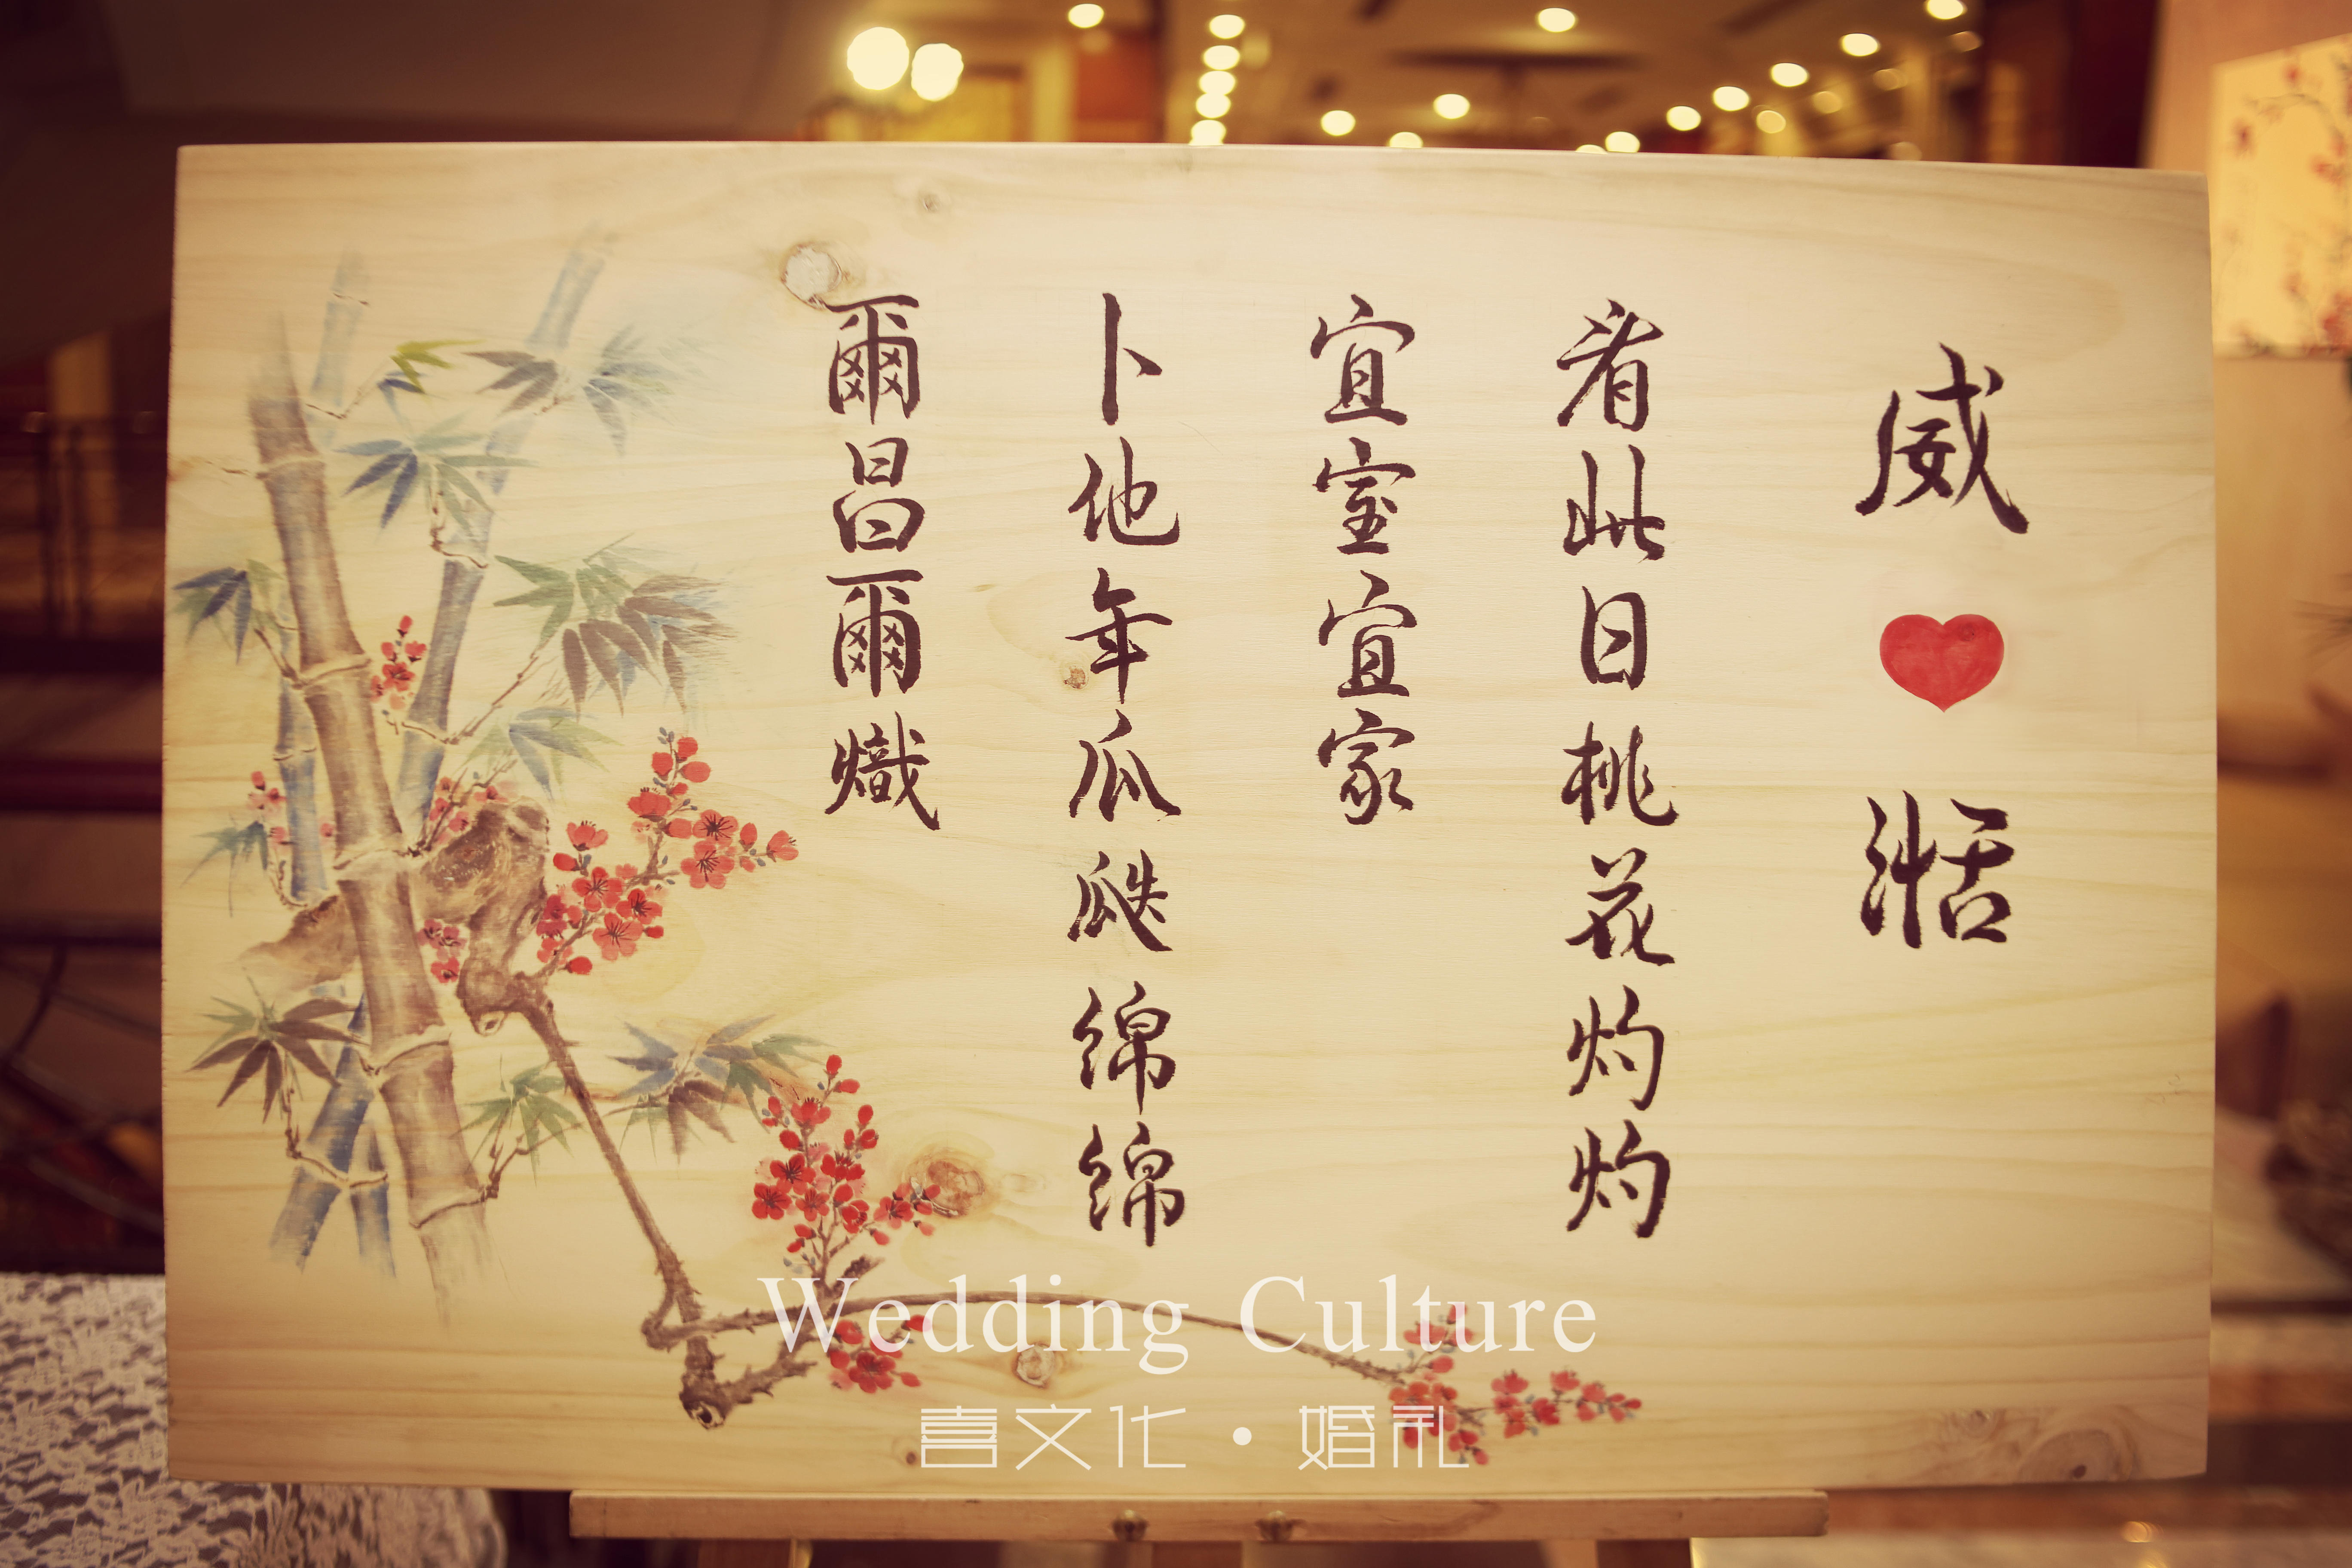 威 ♥ 湉
看此日桃花灼灼
宜室宜家
卜他年瓜瓞绵绵
爾昌爾熾
Wedding Culture
喜文化·婚礼